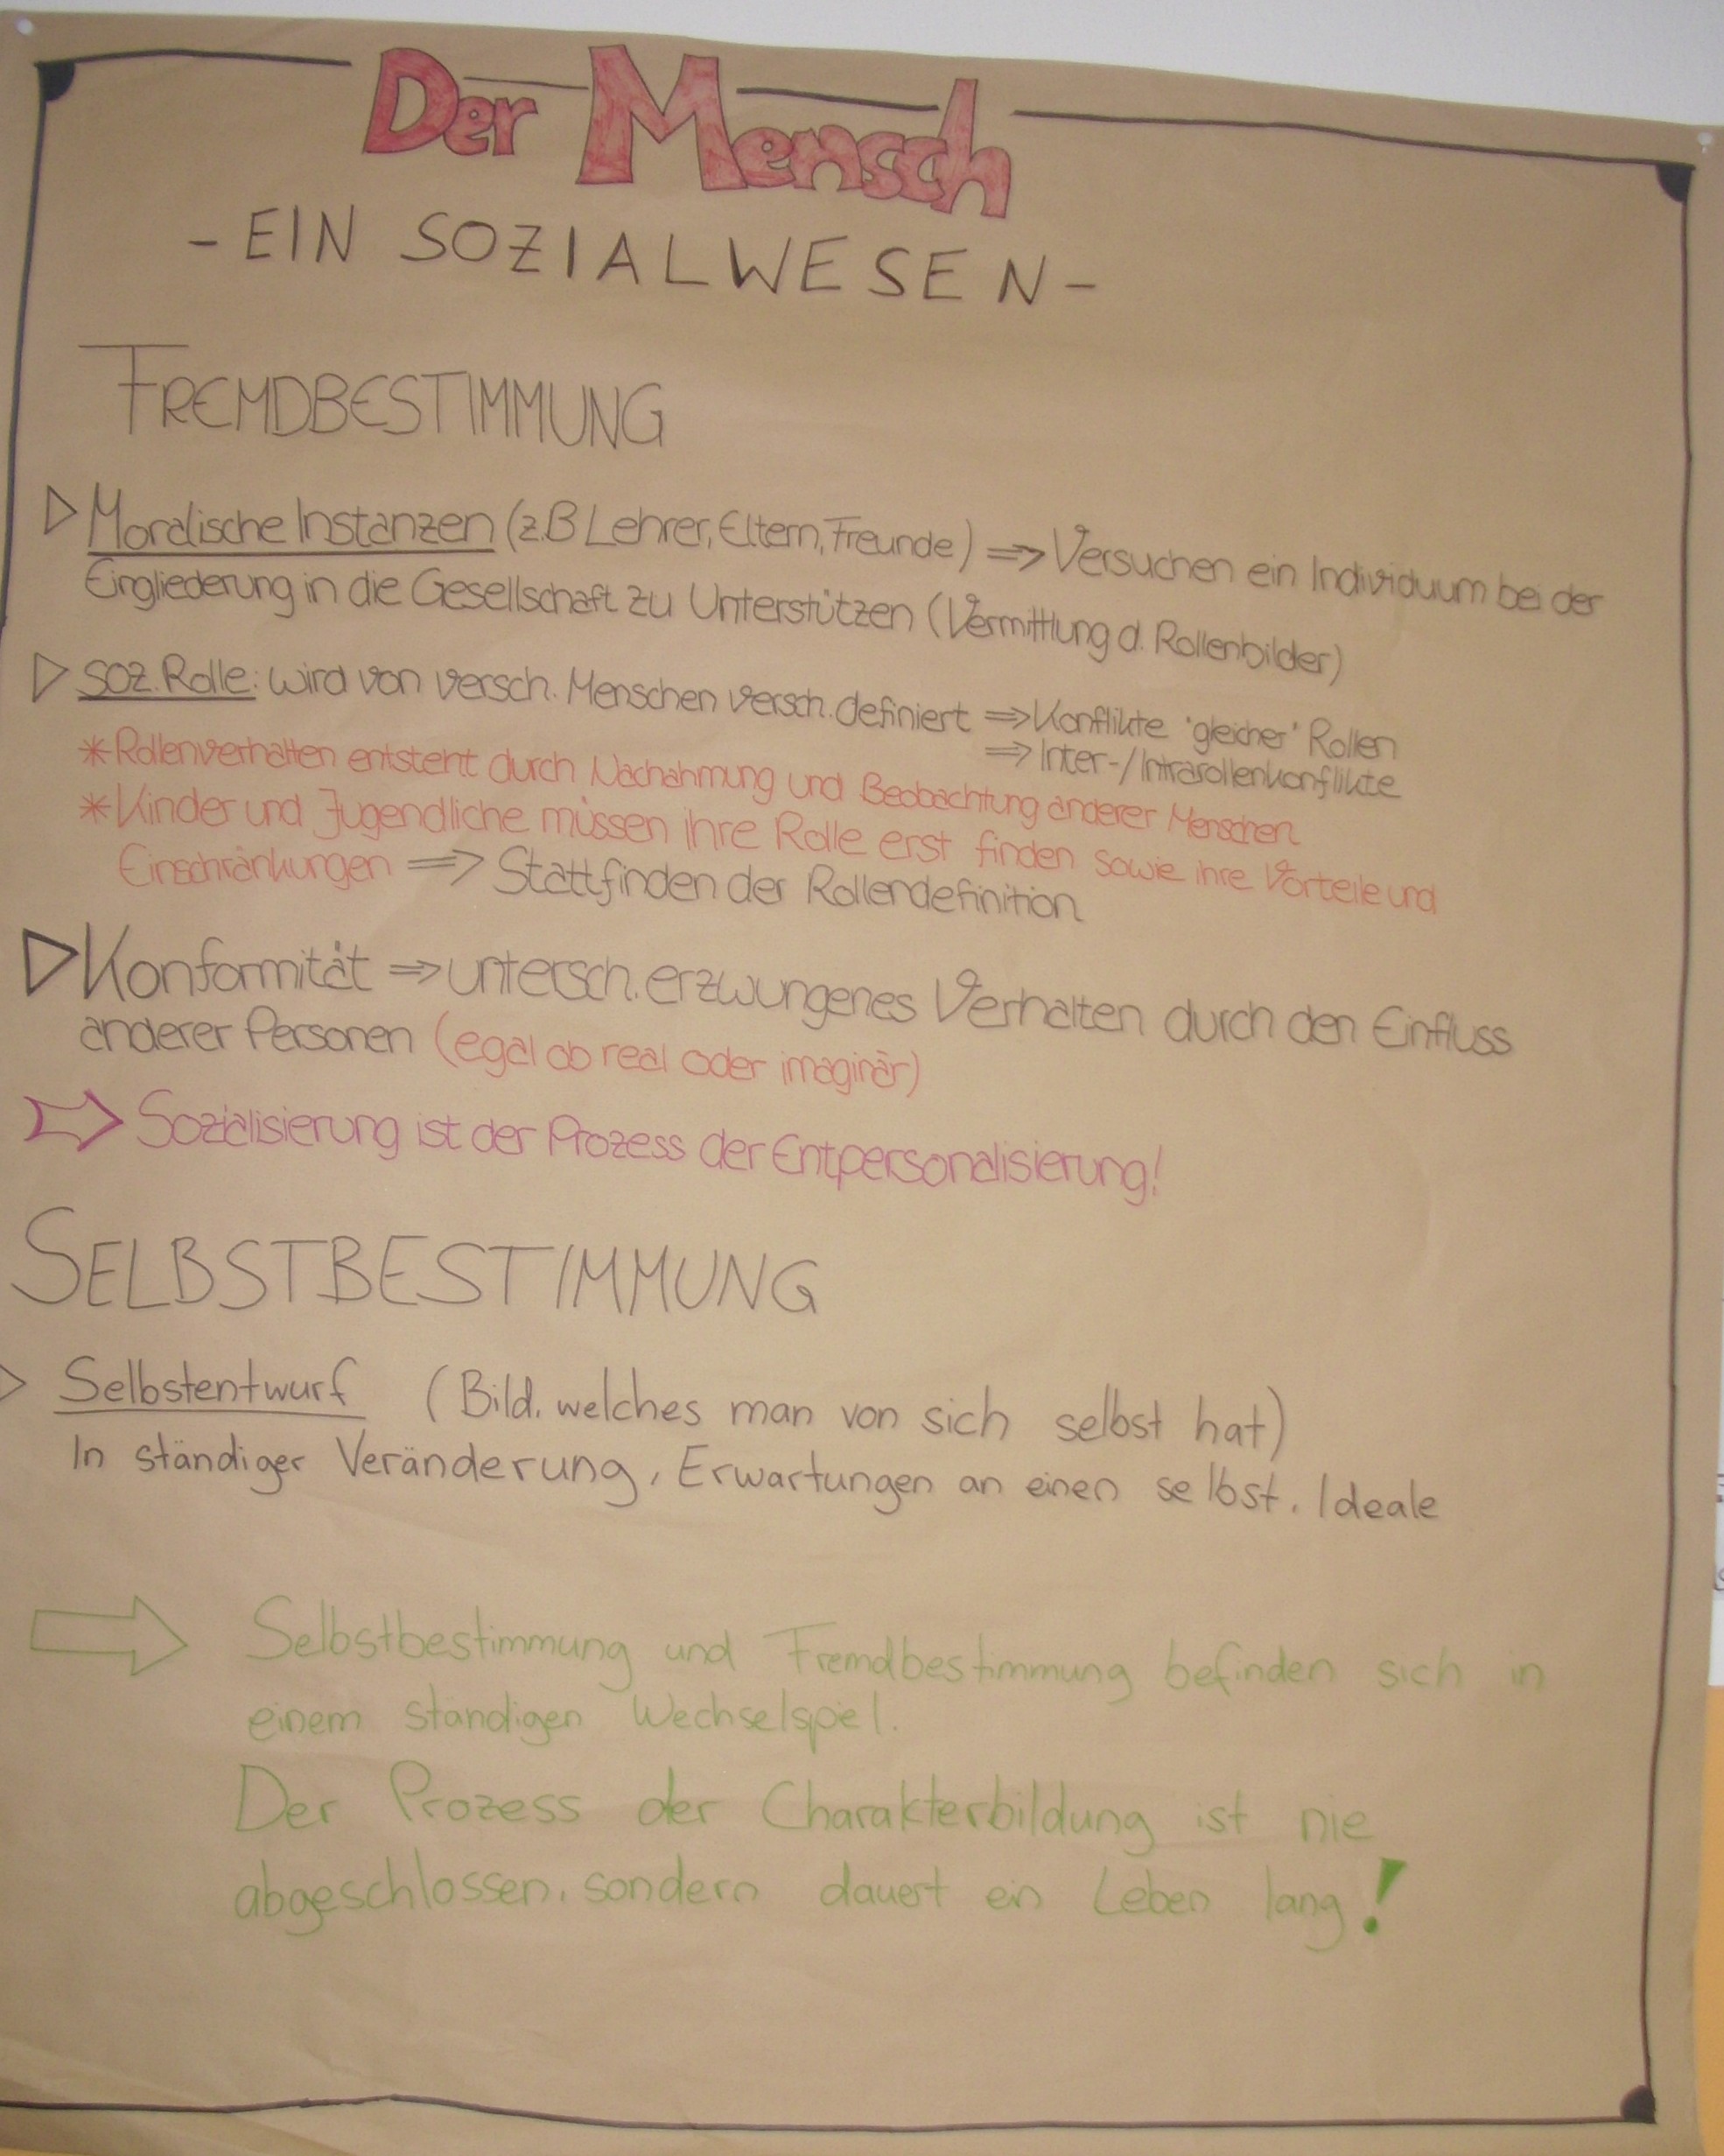 Der Mensch
- EIN SOZIALWESEN -
FREMDBESTIMMUNG
▷ Moralische Instanzen (z.B Lehrer, Eltern, Freunde) => Versuchen ein Individuum bei der
Eingliederung in die Gesellschaft zu Unterstützen (Vermittlung d. Rollenbilder)
▷ soz. Rolle: wird von versch. Menschen versch. definiert => Konflikte 'gleicher' Rollen
=> Inter-/Intrarollenkonflikte
* Rollenverhalten entsteht durch Nachahmung und Beobachtung anderer Menschen
* Kinder und Jugendliche müssen ihre Rolle erst finden sowie ihre Vorteile und
Einschränkungen => Stattfinden der Rollendefinition
▷ Konformität => untersch. erzwungenes Verhalten durch den Einfluss
anderer Personen (egal ob real oder imaginär)
⇨ Sozialisierung ist der Prozess der Entpersonalisierung!
SELBSTBESTIMMUNG
> Selbstentwurf (Bild, welches man von sich selbst hat)
In ständiger Veränderung, Erwartungen an einen selbst, Ideale
⇨ Selbstbestimmung und Fremdbestimmung befinden sich in
einem ständigen Wechselspiel.
Der Prozess der Charakterbildung ist nie
abgeschlossen, sondern dauert ein Leben lang!